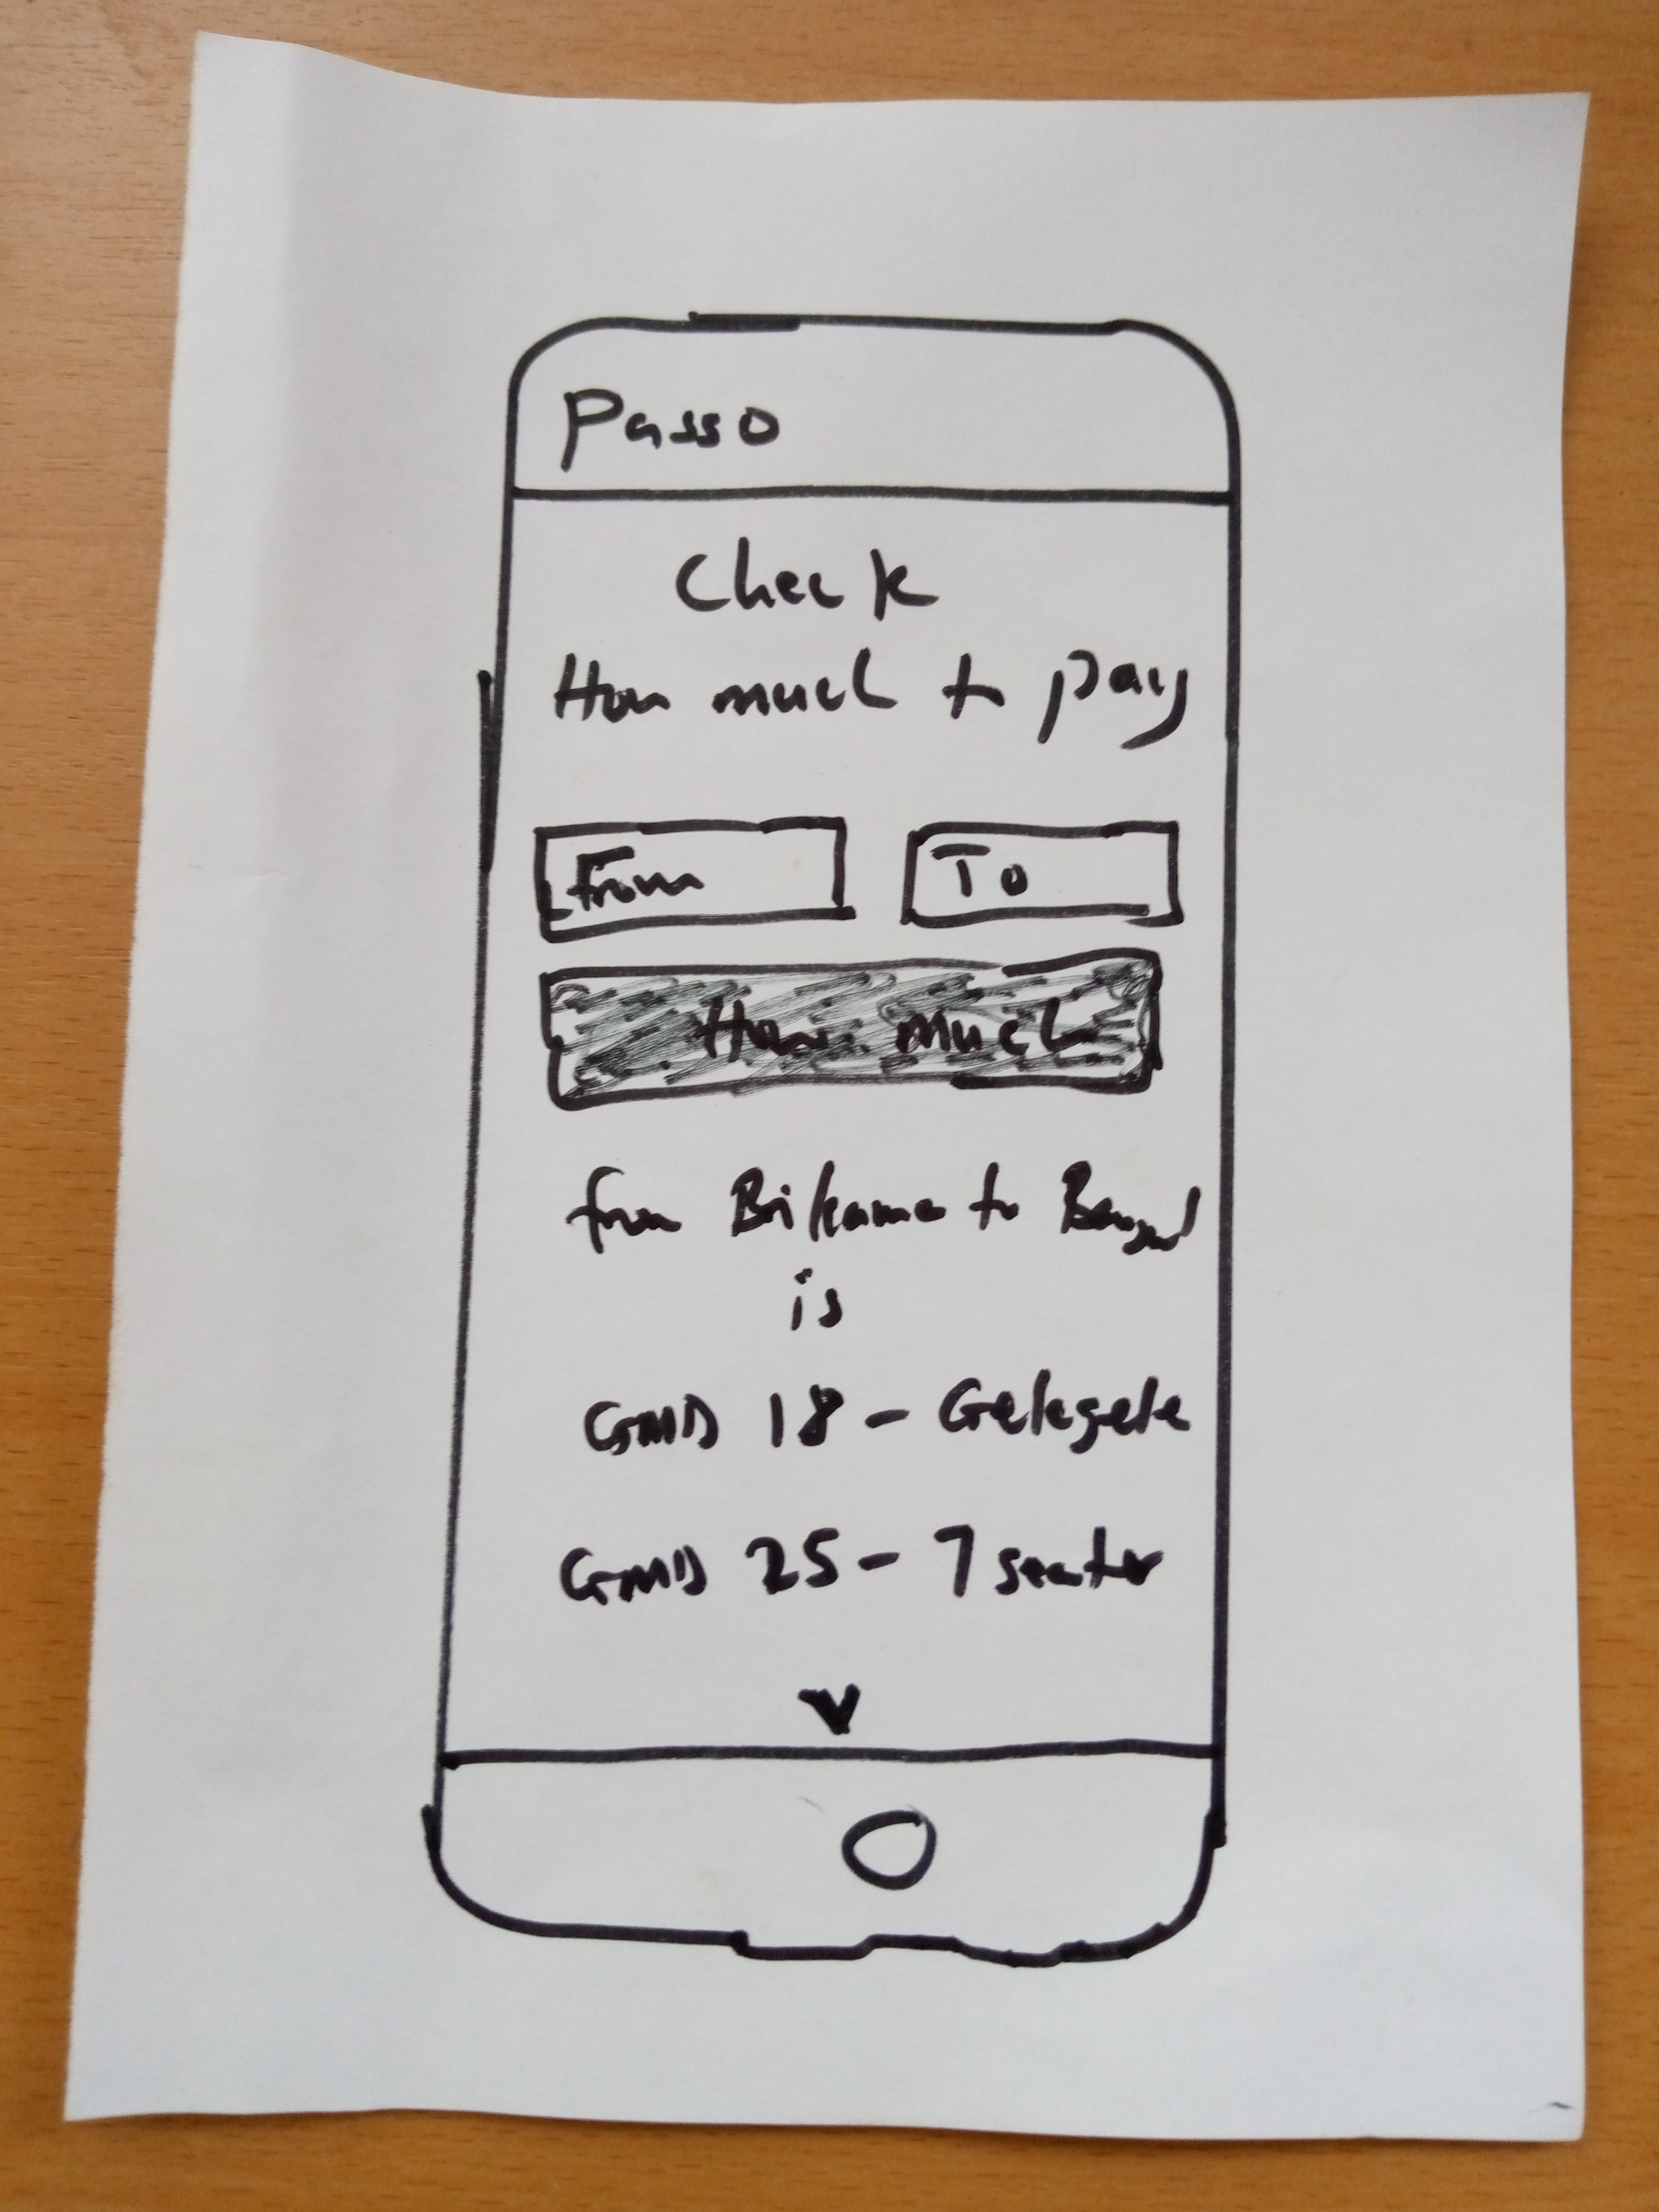 Passo
Check
How much to pay
From
To
How much
from Brikama to Banjul
is
GMD 18 - Gelegele
GMD 25 - 7 seater